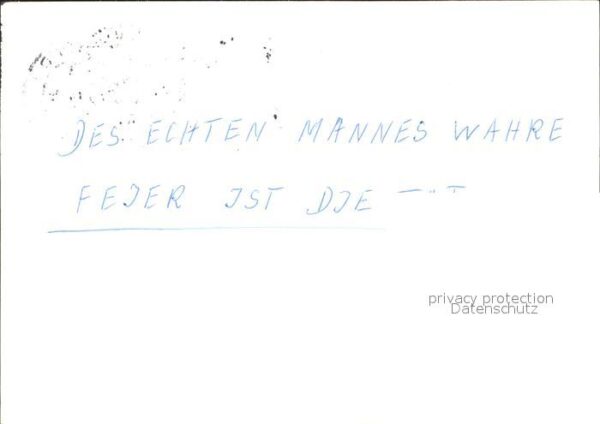 DES ECHTEN MANNES WAHRE
FEIER IST DIE — ·· —
privacy protection
Datenschutz